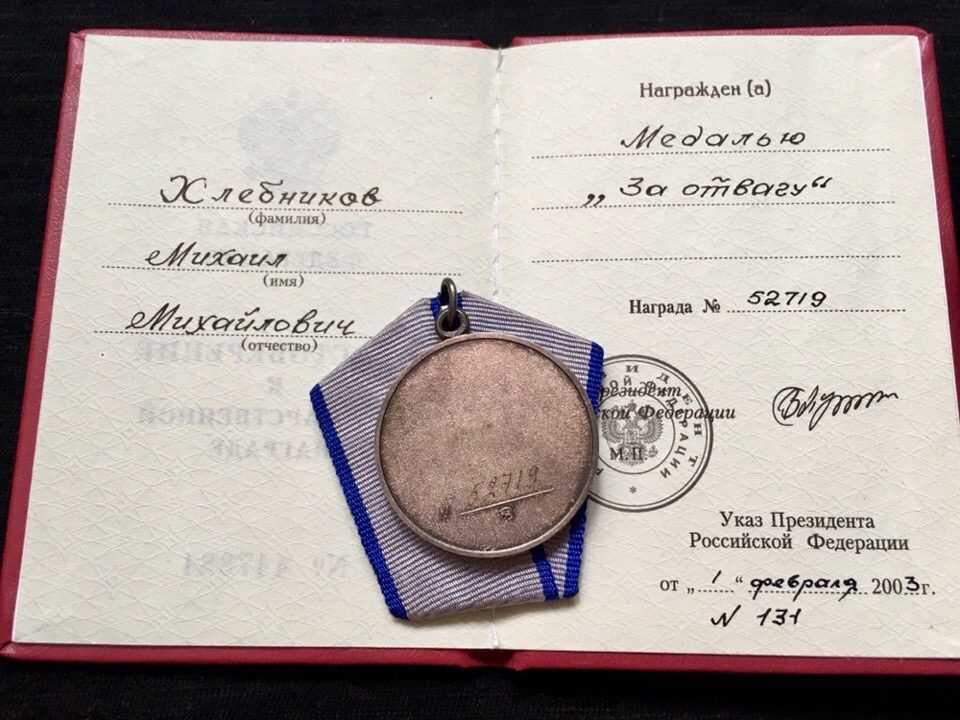 Хлебников
(фамилия)
Михаил
(имя)
Михайлович
(отчество)
Награжден (а)
Медалью
„За отвагу“
Награда № 52719
резидент
кой Федерации
М.П.
Указ Президента
Российской Федерации
от „ 1 “ февраля 2003г.
N 131
№ 52719